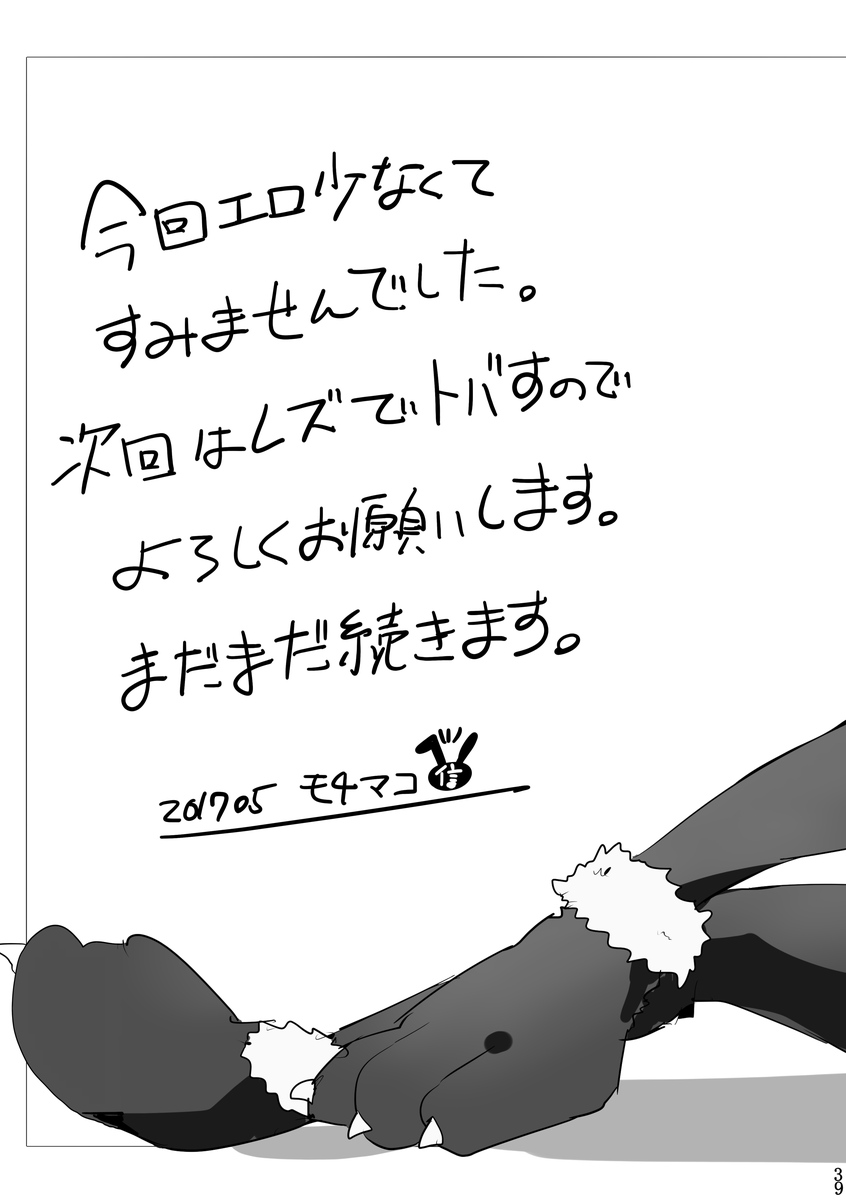 今回エロ少なくて
すみませんでした。
次回はレズでトバすので
よろしくお願いします。
まだまだ続きます。
201705 モチマコ 信
39